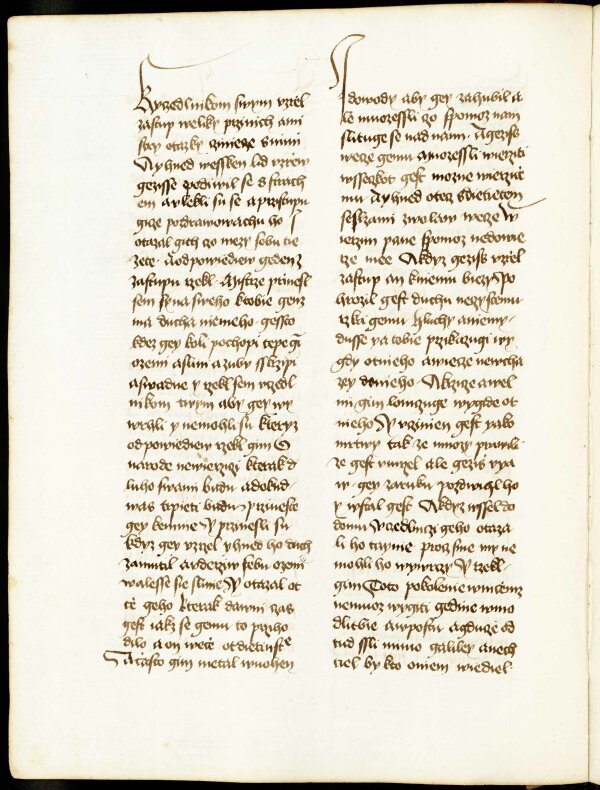 K uczedlnikom swym uzrel
zastup weliky przi nich a mi
stry otazky czinieze s nimi
A yhned wesskeren lid uzrew
gezisse podiwil se a strach
em a vlekli su se a przistupu
gicze pozdrawowachu ho I
otazal gich czo mezy sebu tie
zete. A odpowiediew geden z
zastupu rzekl. Mistrze prinesl
sem syna sweho k tobie genz
ma ducha niemeho gessto
kdez gey koli pochopi tepe gi
o zemi a slini a zuby sskrzipi
a swadne y rzekl sem uczedl
nikom twym aby gey wy
wrhli y nemohli su kteryz
odpowiediew rzekl gim O
narode newierzyczi kterak d
luho s wami budu a dokud
was trpieti budu przineste
gey ke mnie Y przinesli su
kdyz gey uzrzel yhned ho duch
zamutil a uderziw sebu o zemi
walesse sie slinie Y otazal ot
cze geho kterak dawni czas
gest iakz se gemu to prziho
dilo a on wece ot dietinstwe
A czasto gim metal w uohen
I do wody aby gey zahubil a
le muozessli czo spomoz nam
slituge se nad nami. A gezis
wecze gemu a muozessli wierziti
wsseczko gest mozne wierzicie
mu A yhned otecz dietietem
se slzami zwolaw wecze W
ierzim pane spomoz nedowie
rze mee A kdyz gezis uzrel
zastup an k niemu biezy Po
hrozil gest duchu neczystemu
rzka gemu hluchy a niemy
dusse ya tobie przikazugi wy
gdy ot nieho a wiecze newcha
zey do nieho A krzicze a wel
mi gim lomczuge wygide ot
nieho Y uczinien gest yako
mrtwy tak ze mnozy prawili
ze gest umrzel ale gezis uya
w gey za ruku pozdwihl ho
y wstal gest A kdyz wssel do
domu Y uczedlniczi geho otaza
li ho taynie procz sme my ne
mohli ho wywrczy Y rzekl
gim Toto pokolenie w niczemz
nemuoz wygiti gedine w mo
dlitbie a w postu a gducze od
tud ssli mimo galiley a nech
tiel by kto o niem wiediel